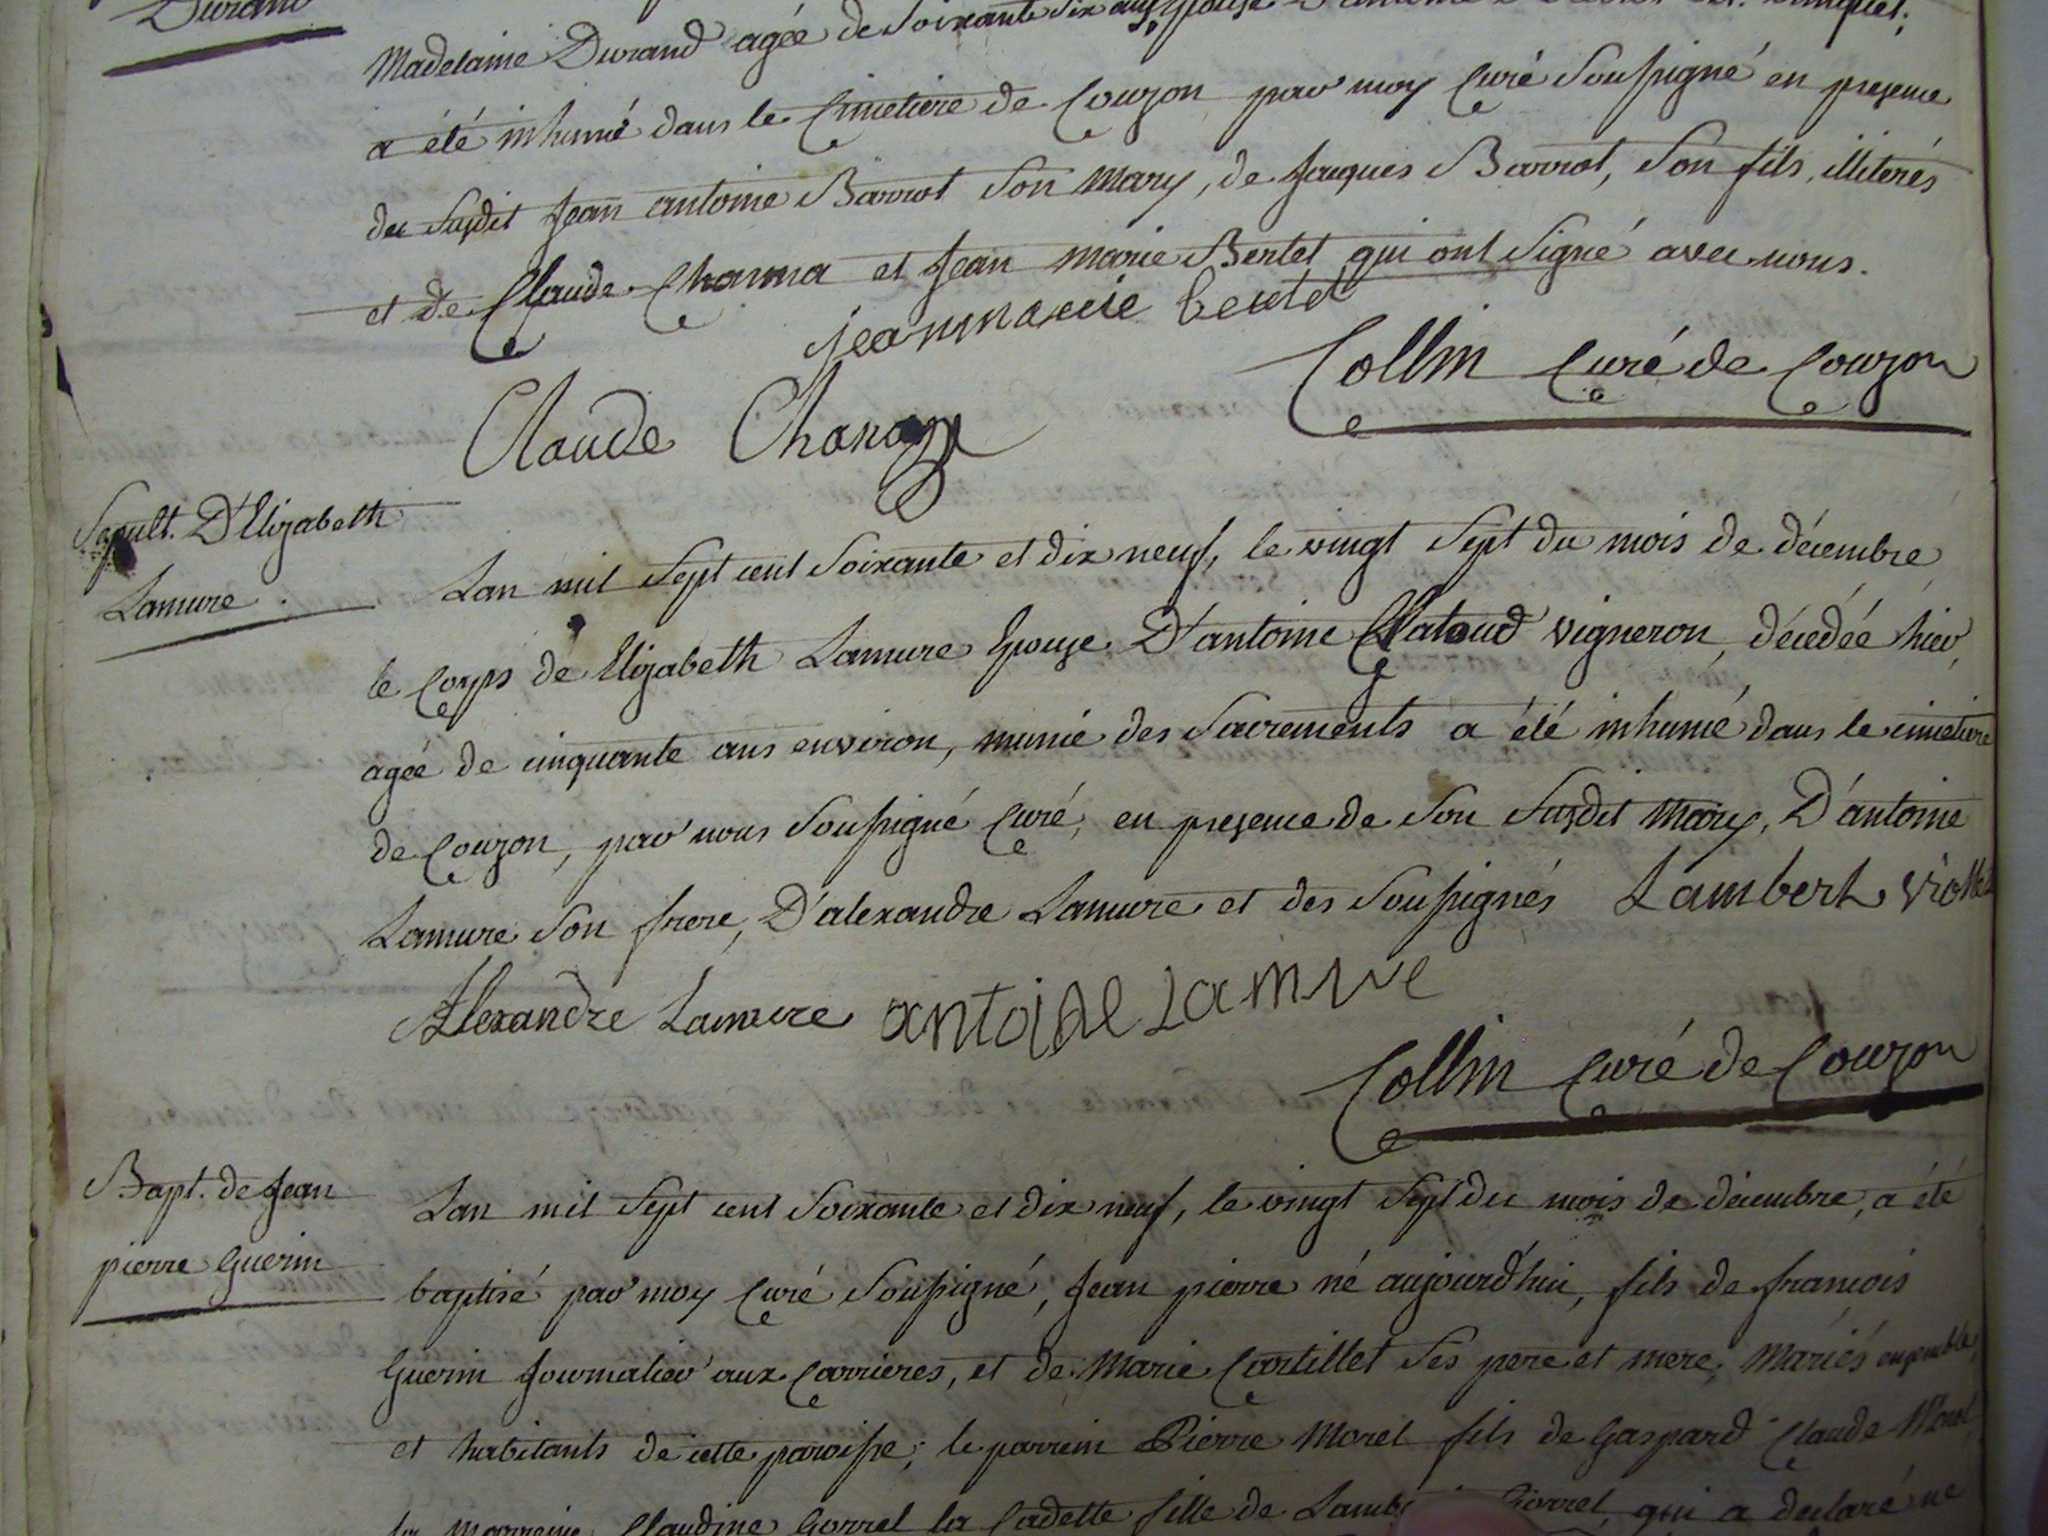 Durand
Madelaine Durand agée de Soixante Six ans, Epouse D'antoine
a été inhumé dans le Cimetiere de Couzon par moy Curé Soussigné en presence
du Susdit Jean antoine Barriot Son Mary, de Jacques Barriot, Son fils, illiterés
et de Claude Channa et Jean Marie Bertet qui ont Signé avec nous.
jean marie bertet
Collin Curé de Couzon
Claude Chana
Sepult. D'Elizabeth
Lamure.
Lan mil Sept cent Soixante et dix neuf, le vingt Sept du mois de décembre
le Corps de Elizabeth Lamure Epouse D'antoine Clataud vigneron, décedée hier,
agée de cinquante ans environ, munie des Sacrements a été inhumé dans le cimetiere
de Couzon, par nous Soussigné Curé, en presence de Son Susdit Mary, D'antoine
Lamure Son frere, D'alexandre Lamure et des Soussignés Lambert Viollet
Alexandre Lamure antoine Lamure
Collin Curé de Couzon
Bapt. de Jean
pierre Guerin
Lan mil Sept cent Soixante et dix neuf, le vingt Sept du mois de décembre, a été
baptisé par moy Curé Soussigné, Jean pierre né aujourd'hui, fils de francois
Guerin Journalier aux Carrieres, et de Marie Cortillet Ses pere et mere, Mariés ensemble,
et habitants de cette paroisse; le parrein Pierre Morel fils de Gaspard Claude Morel
la Marreine Claudine Gorrel la Cadette fille de Gorrel, qui a declaré ne